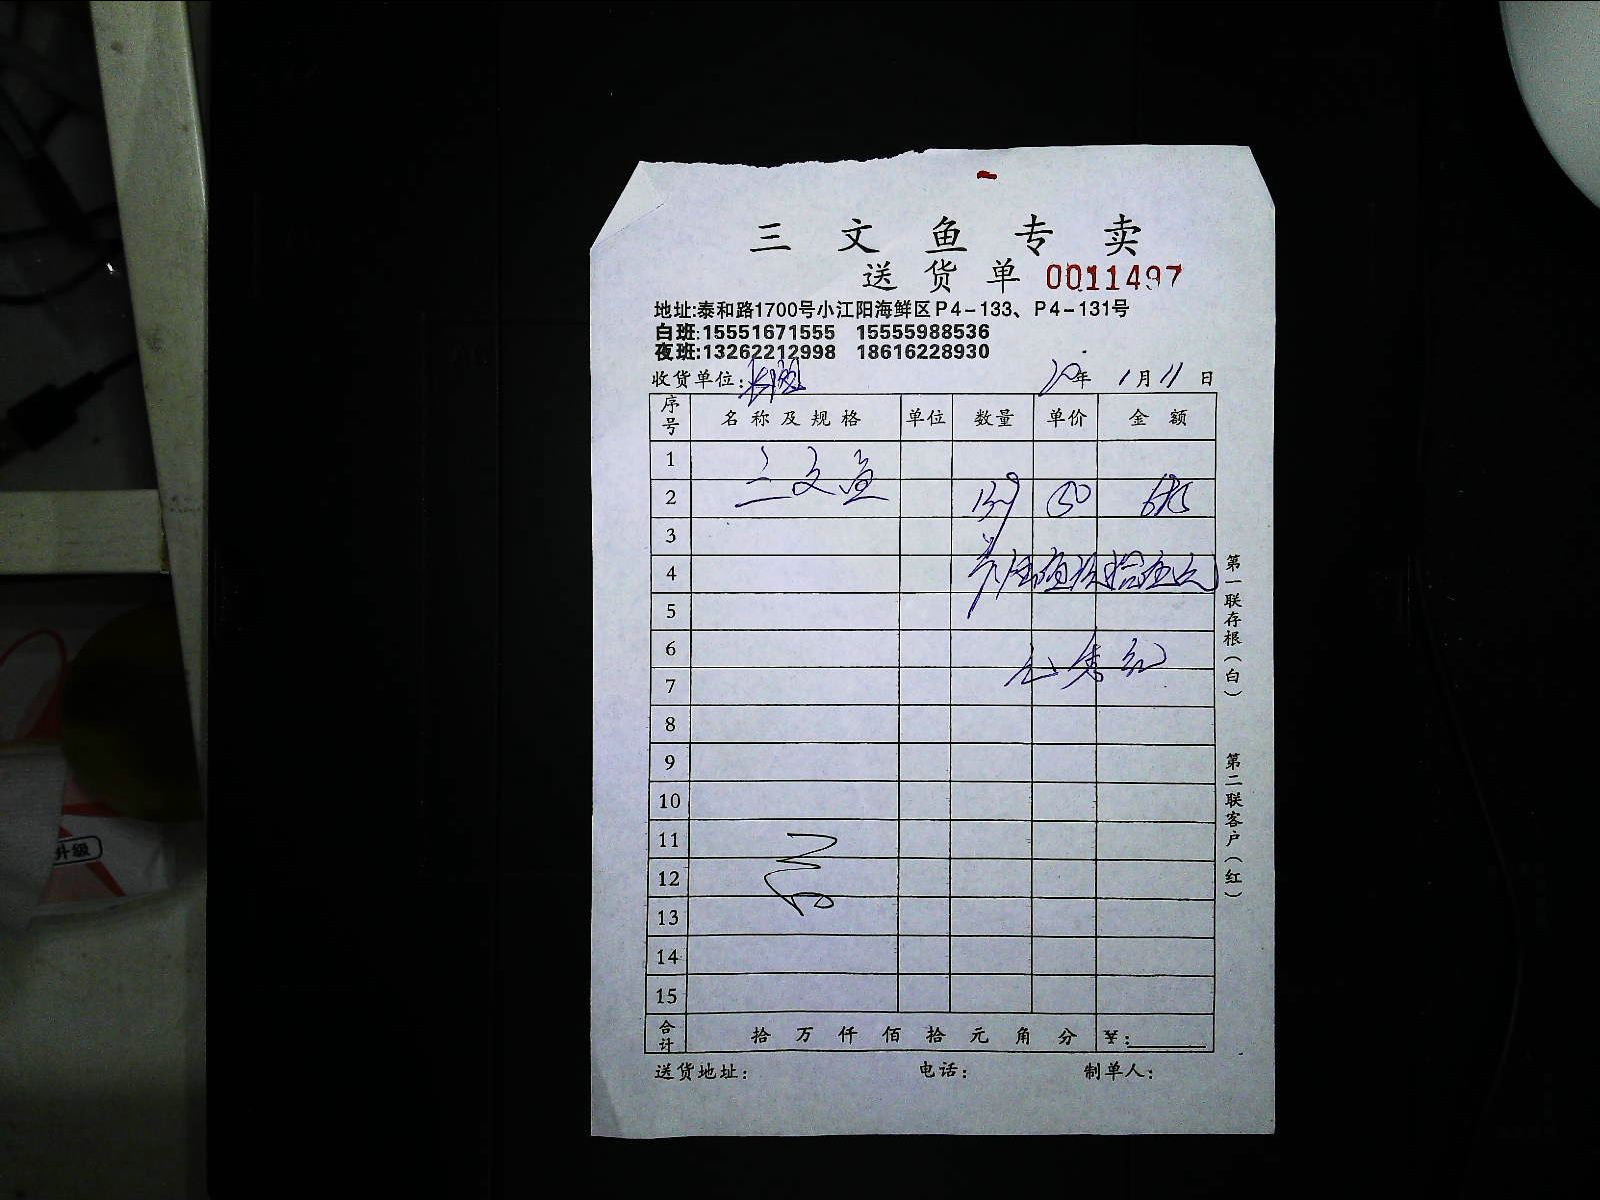 三文鱼专卖
送货单 0011497
地址:泰和路1700号小江阳海鲜区P4-133、P4-131号
白班:15551671555 15555988536
夜班:13262212998 18616228930
收货单位: 20年 1月 11日
序号 名称及规格 单位 数量 单价 金额
1
三文鱼
2 139 50 695
3
4
5
6
7
8
9
10
11
12
13
14
15
合计 拾万仟佰拾元角分 ¥:
送货地址: 电话: 制单人:
第一联存根(白)
第二联客户(红)
升级